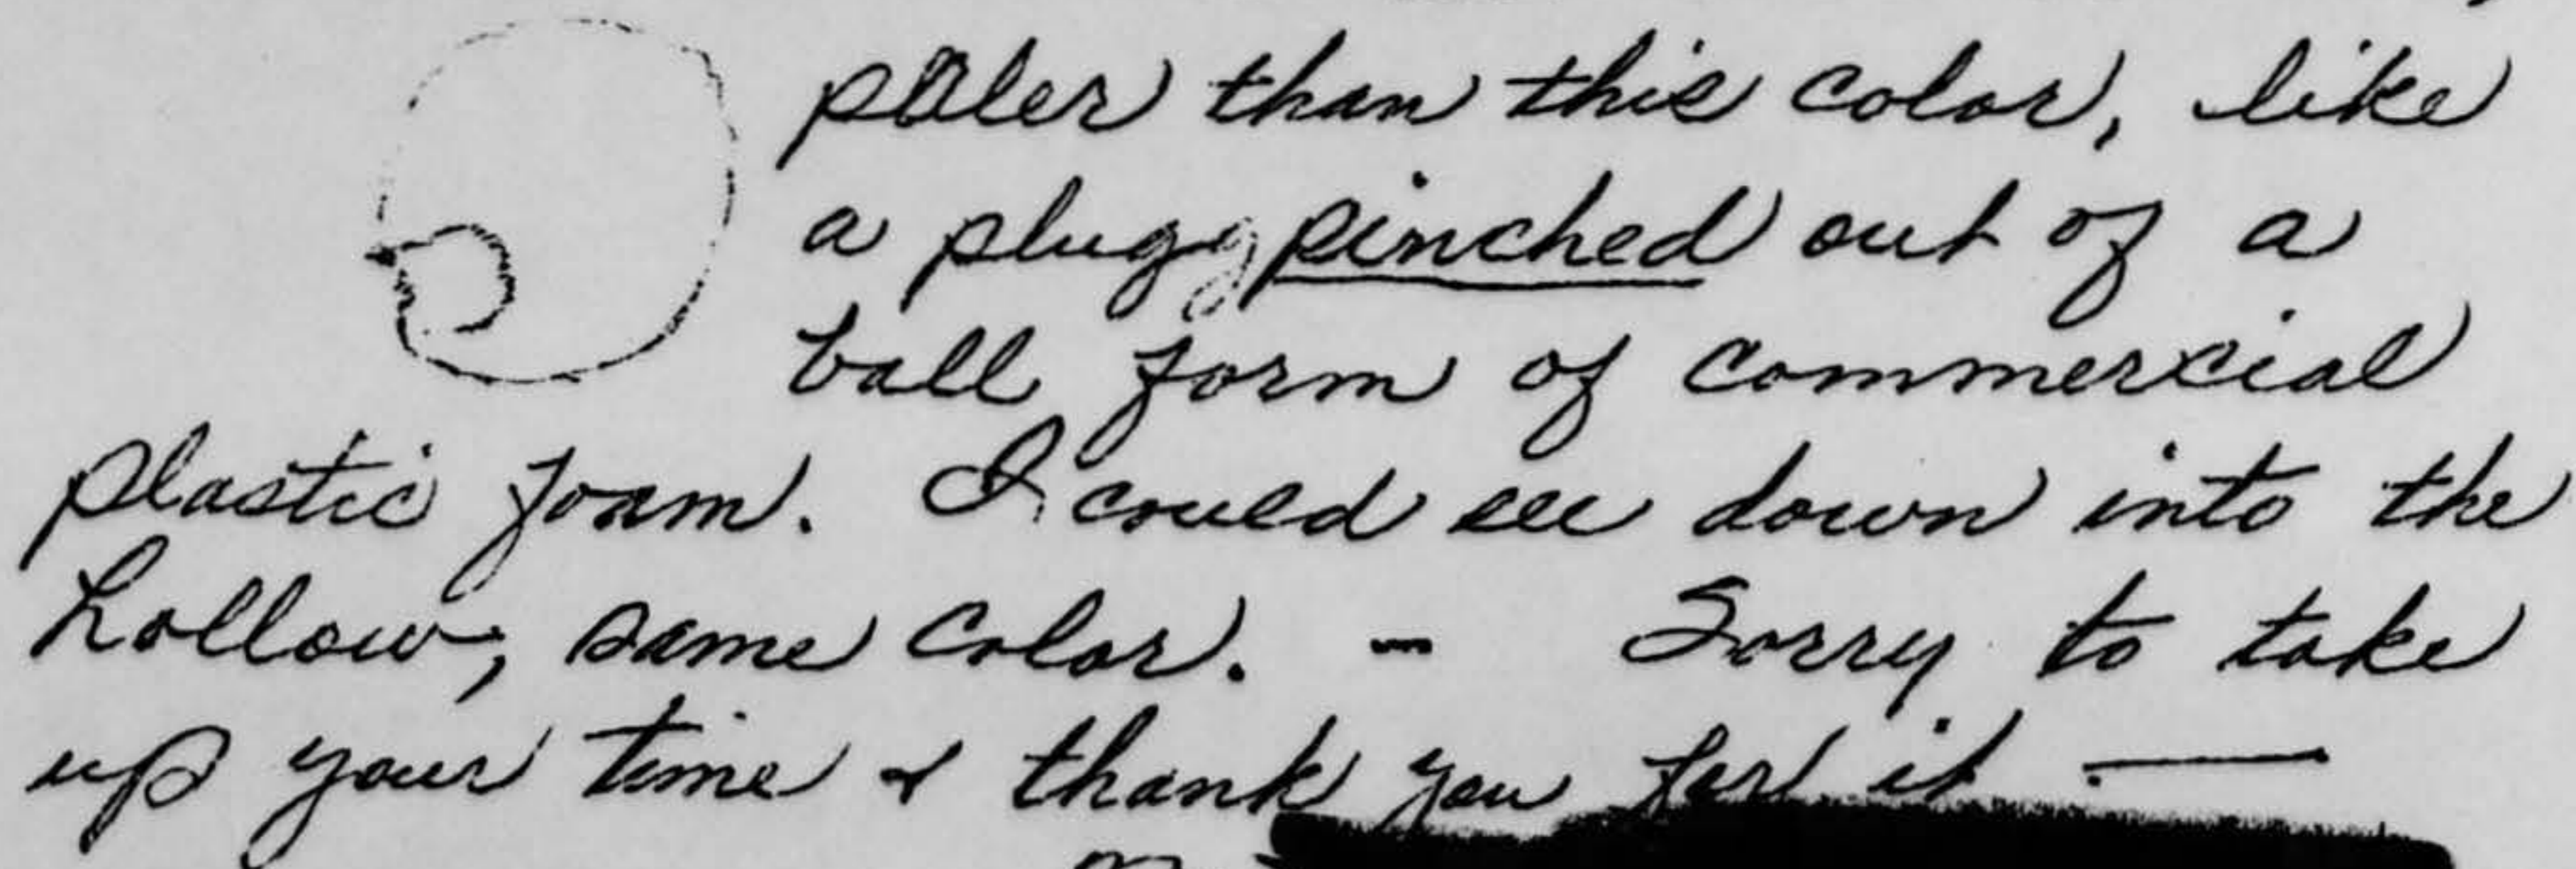 paler than this color, like
a plug pinched out of a
ball form of commercial
plastic foam. I could see down into the
hollow, same color. - Sorry to take
up your time & thank you for it. —